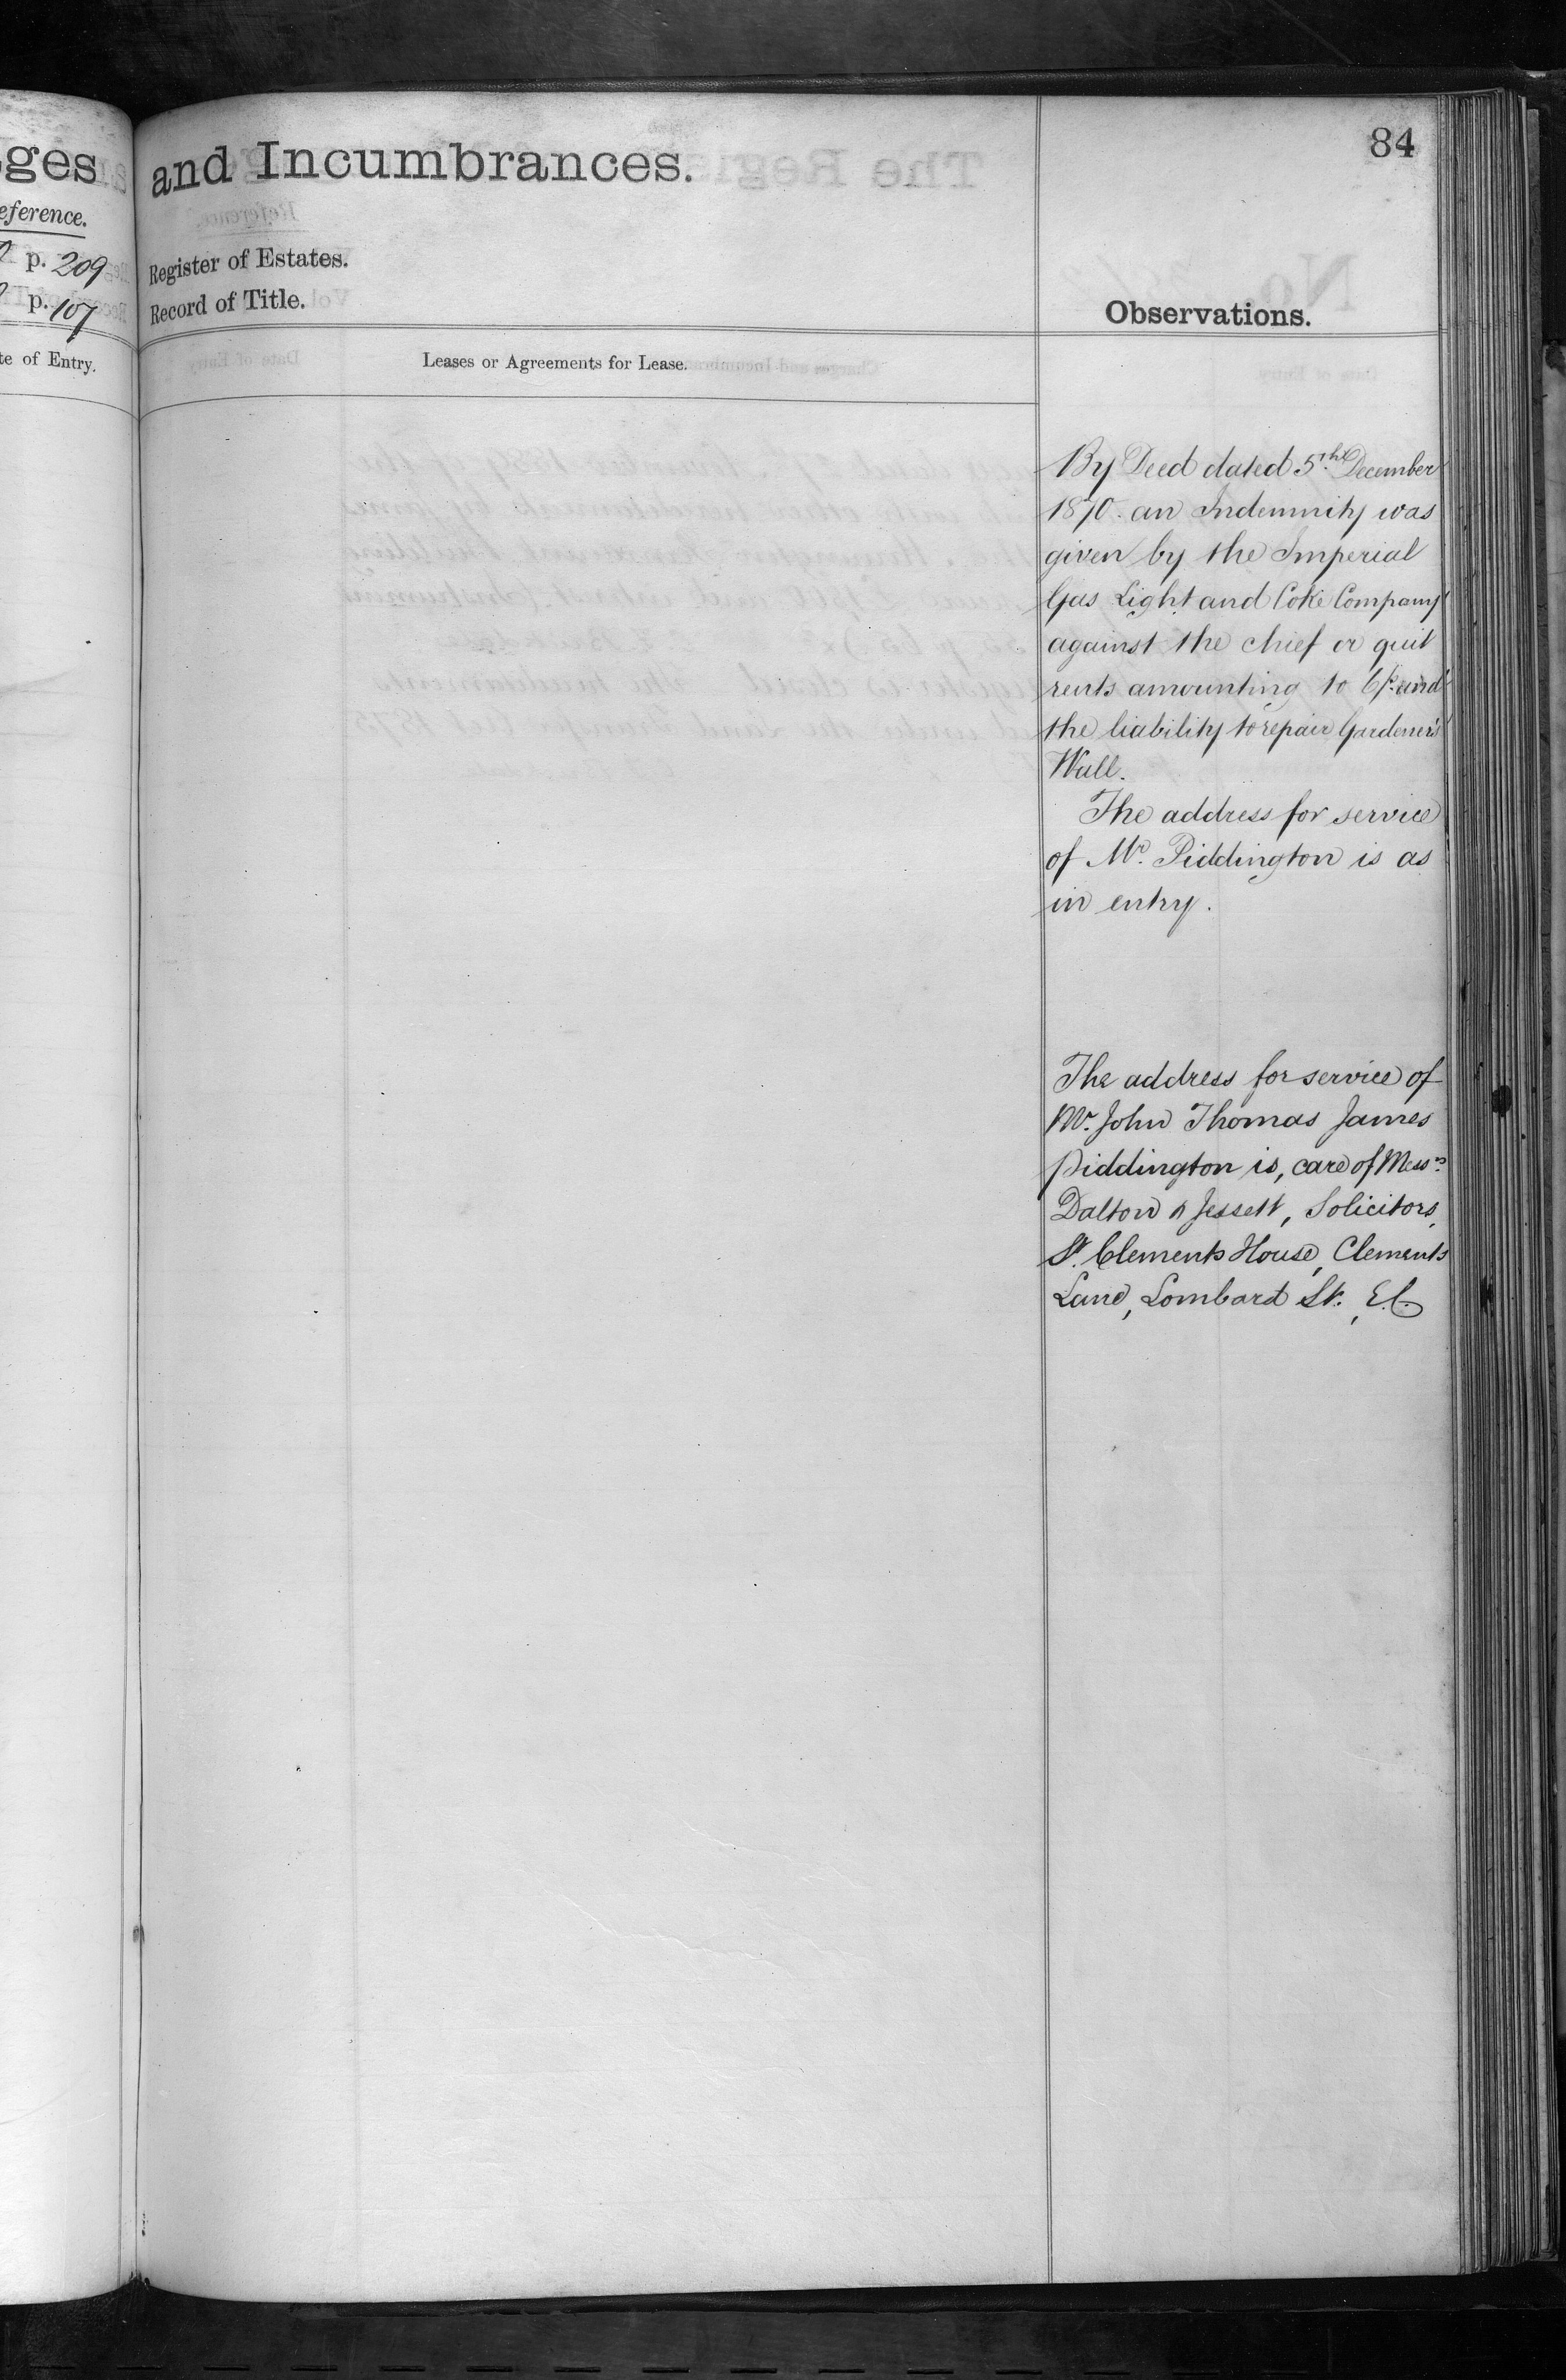 ges
eference.
p. 209
p. 107
te of Entry.
and Incumbrances.
84
Register of Estates.
Record of Title.
Observations.
Leases or Agreements for Lease.
By Deed dated 5th December
1870 an Indemnity was
given by the Imperial
Gas Light and Coke Company
against the chief or quit
rents amounting to and
the liability to repair Gardener's
Wall.
The address for service
of Mr. Piddington is as
in entry.
The address for service of
Mr. John Thomas James
Piddington is, care of Messrs.
Dalton & Jessett, Solicitors,
St. Clements House, Clements
Lane, Lombard St., E.C.